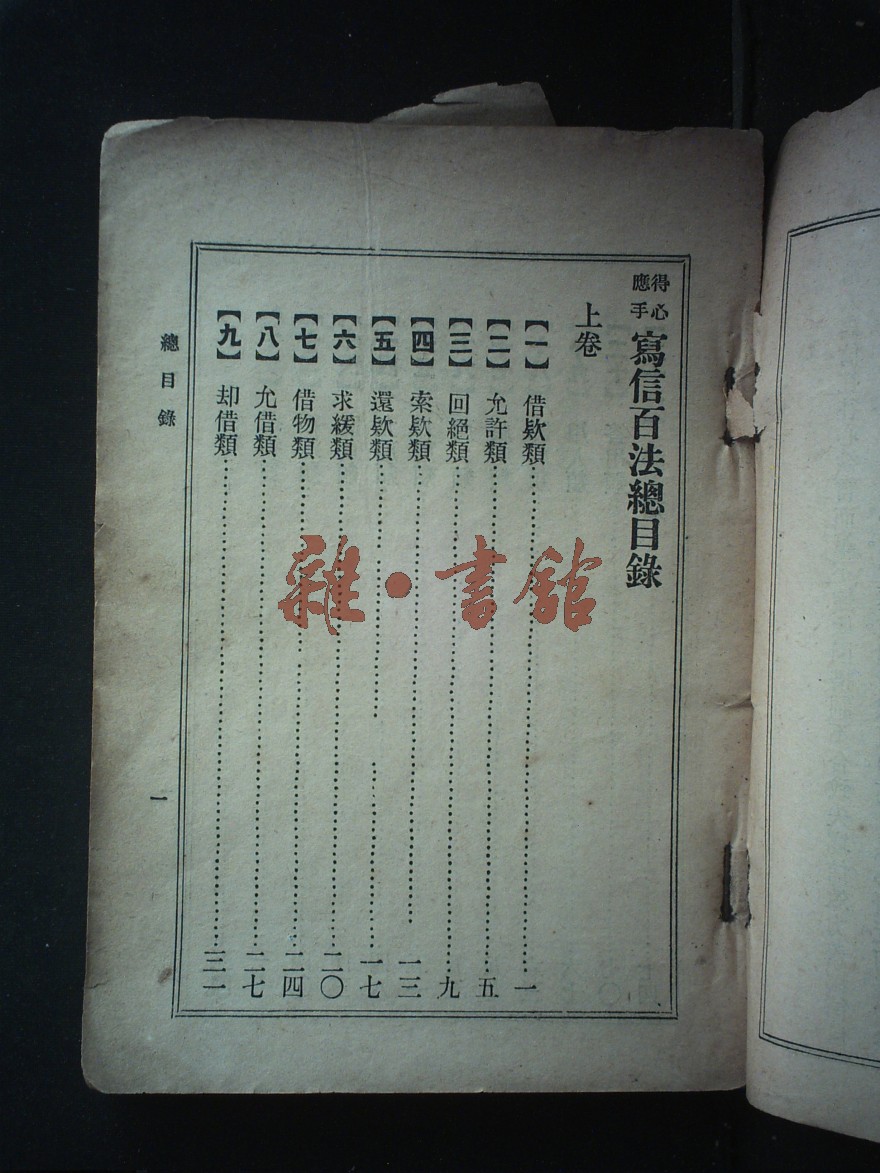 得心應手 寫信百法總目錄
上卷
【一】 借欵類 一
【二】 允許類 五
【三】 回絕類 九
【四】 索欵類 一三
【五】 還欵類 一七
【六】 求緩類 二〇
【七】 借物類 二四
【八】 允借類 二七
【九】 却借類 三一
總目錄
一
雜·書館